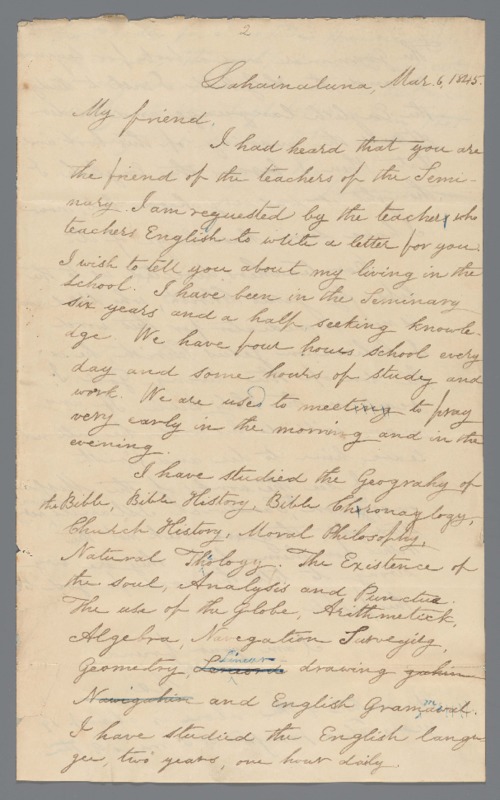 2
Lahainaluna, Mar. 6, 1845.
My friend,
I had heard that you are
the friend of the teachers of the Semi-
nary. I am requested by the teacher who
teachers English to write a letter for you.
I wish to tell you about my living in the
School. I have been in the Seminary
six years and a half seeking knowle-
dge. We have four hours school every
day and some hours of study and
work. We are used to meeting to pray
very early in the morning and in the
evening.
I have studied the Geograhy of
the Bible, Bible History, Bible Chronaglogy,
Church History, Moral Philosophy,
Natural Thology. The Existence of
the soul, Analysis and Punctua.
The use of the Globe, Arithmetick,
Algebra, Navegation Surveyig,
Geometry, Linear drawing
Navigation and English Grammar.
I have studied the English langu-
gee, two years, one hour daily.